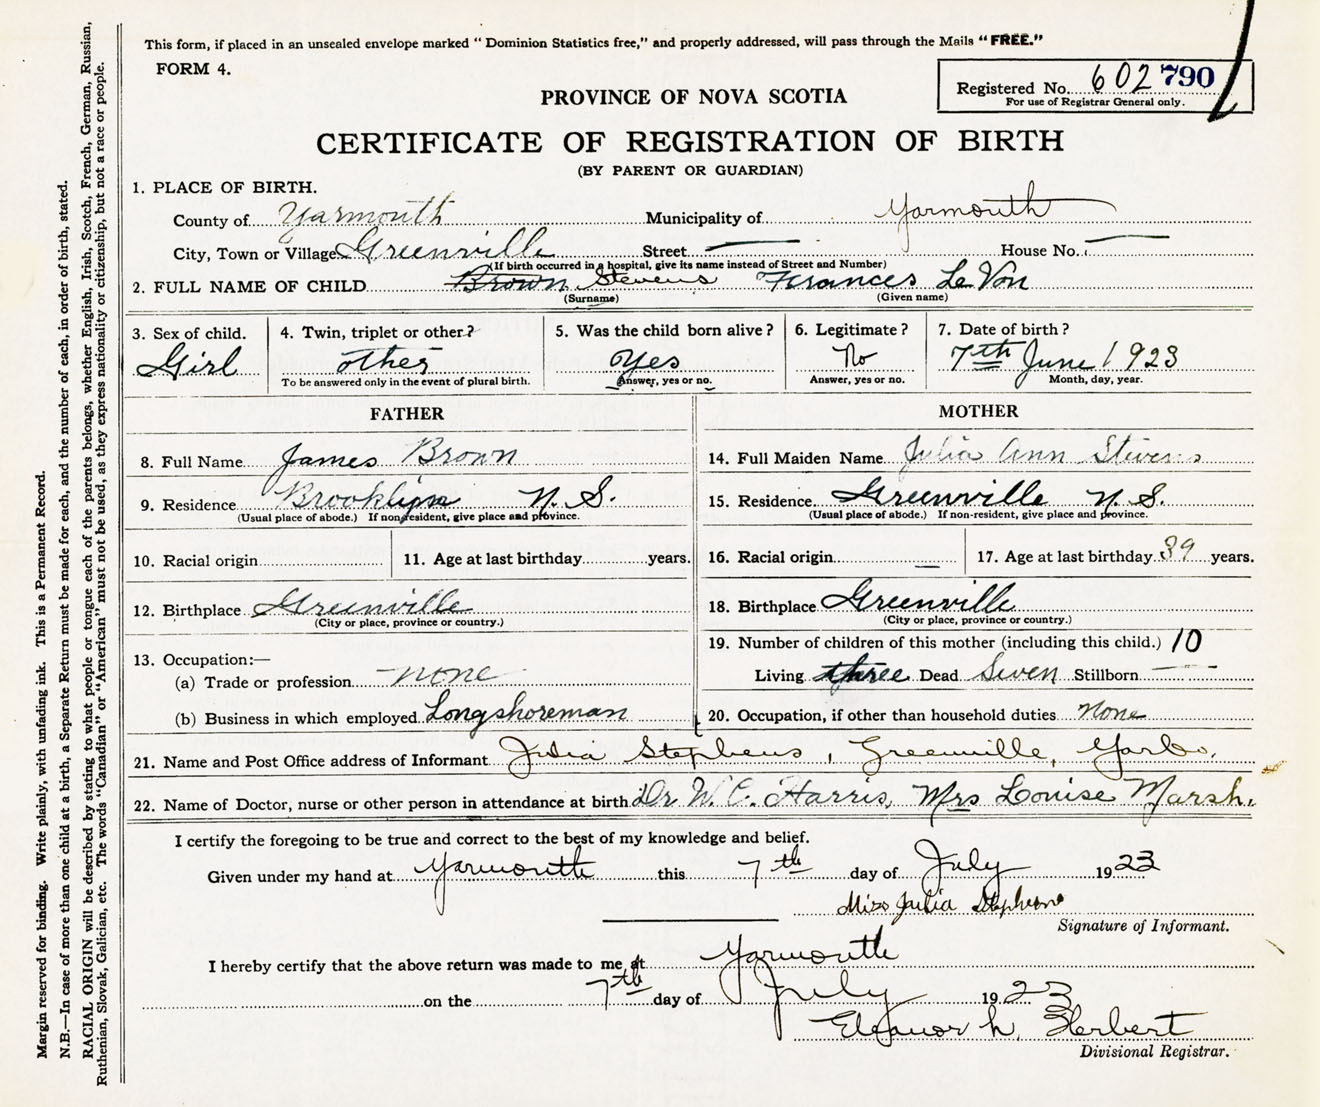 This form, if placed in an unsealed envelope marked "Dominion Statistics free," and properly addressed, will pass through the Mails "FREE."
FORM 4.
Registered No. 602790
For use of Registrar General only.
PROVINCE OF NOVA SCOTIA
CERTIFICATE OF REGISTRATION OF BIRTH
(BY PARENT OR GUARDIAN)
1. PLACE OF BIRTH.
County of Yarmouth Municipality of Yarmouth
City, Town or Village Greenville Street — House No. —
(If birth occurred in a hospital, give its name instead of Street and Number)
2. FULL NAME OF CHILD Brown Stevens Frances LeVon
(Surname) (Given name)
3. Sex of child. 4. Twin, triplet or other? 5. Was the child born alive? 6. Legitimate? 7. Date of birth?
Girl other Yes No 7th June 1923
To be answered only in the event of plural birth. Answer, yes or no. Answer, yes or no. Month, day, year.
FATHER
8. Full Name James Brown
9. Residence Brooklyn N.S.
(Usual place of abode.) If non-resident, give place and province.
10. Racial origin 11. Age at last birthday years.
12. Birthplace Greenville
(City or place, province or country.)
13. Occupation:—
(a) Trade or profession none
(b) Business in which employed Longshoreman
MOTHER
14. Full Maiden Name Julia Ann Stivens
15. Residence Greenville N.S.
(Usual place of abode.) If non-resident, give place and province.
16. Racial origin — 17. Age at last birthday 39 years.
18. Birthplace Greenville
(City or place, province or country.)
19. Number of children of this mother (including this child.) 10
Living three Dead Seven Stillborn —
20. Occupation, if other than household duties None
21. Name and Post Office address of Informant Julia Stephens, Greenville, Yarmo.
22. Name of Doctor, nurse or other person in attendance at birth Dr W.C. Harris, Mrs Louise Marsh.
I certify the foregoing to be true and correct to the best of my knowledge and belief.
Given under my hand at Yarmouth this 7th day of July 1923
Miss Julia Stephens
Signature of Informant.
I hereby certify that the above return was made to me at Yarmouth
on the 7th day of July 1923
Eleanor h. Herbert
Divisional Registrar.
Margin reserved for binding. Write plainly, with unfading ink. This is a Permanent Record.
N.B.—In case of more than one child at a birth, a Separate Return must be made for each, and the number of each, in order of birth, stated.
RACIAL ORIGIN will be described by stating to what people or tongue each of the parents belongs, whether English, Irish, Scotch, French, German, Russian,
Ruthenian, Slovak, Galician, etc. The words "Canadian" or "American" must not be used, as they express nationality or citizenship, but not a race or people.